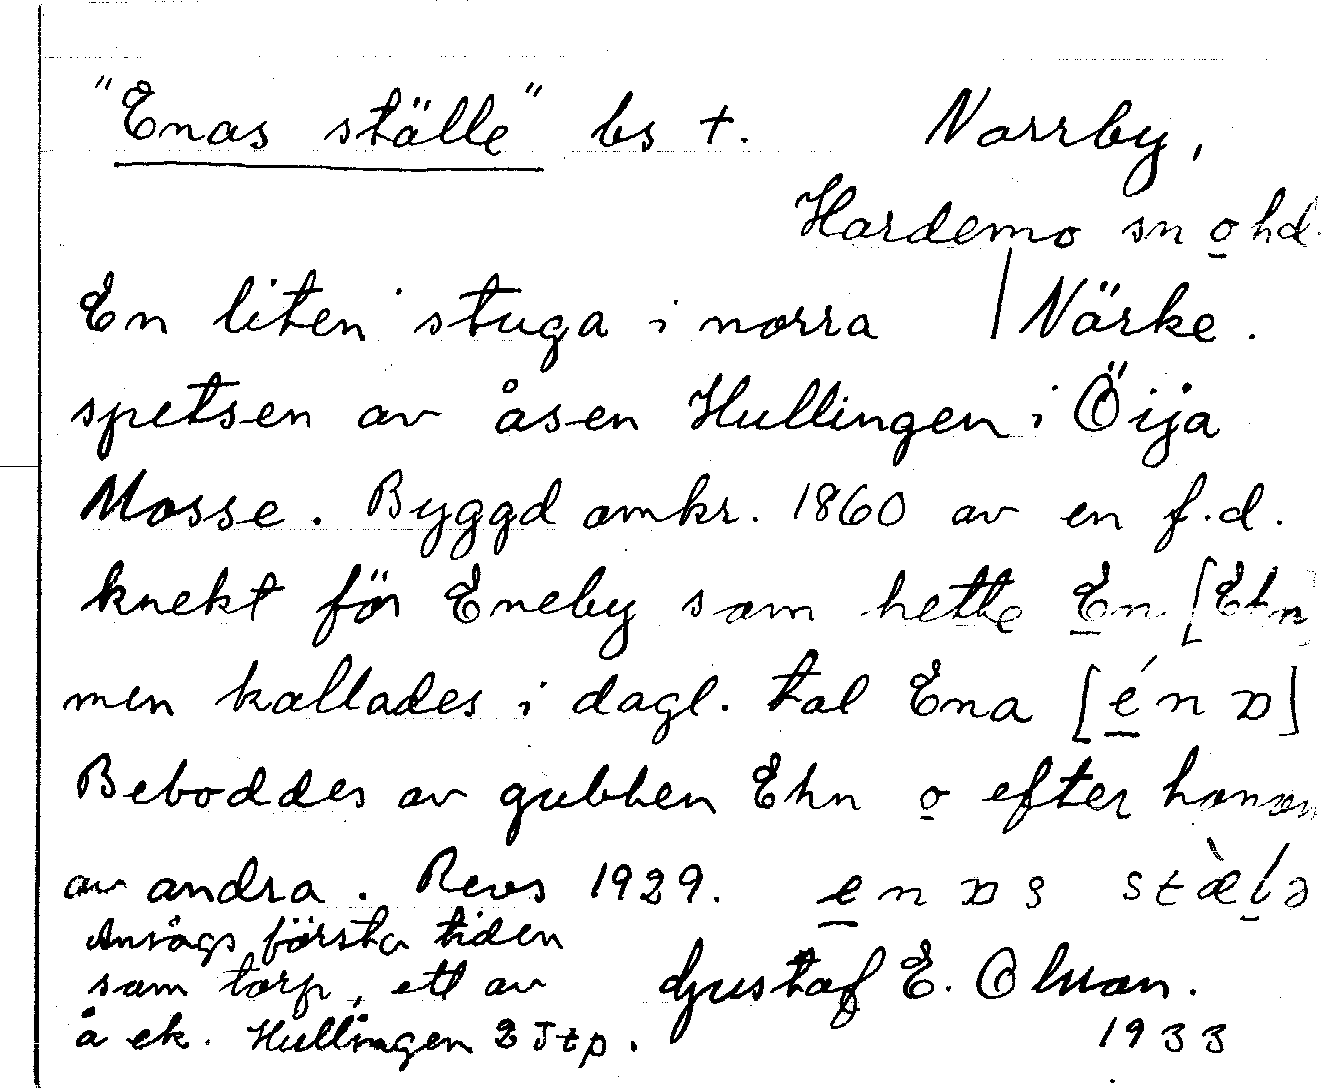 "Enas ställe" bs t. Norrby,
Hardemo sn o hd.
En liten stuga i norra | Närke.
spetsen av åsen Hullingen i Öija
Mosse. Byggd omkr. 1860 av en f.d.
knekt för Eneby som hette En [Ehn]
men kallades i dagl. tal Ena [énɒ]
Beboddes av gubben Ehn o efter honom
av andra. Revs 1929. enɒs
Ansågs första tiden
som torp, ett av Gustaf E. Olson.
å ek. Hullingen 2 Jtp. 1933